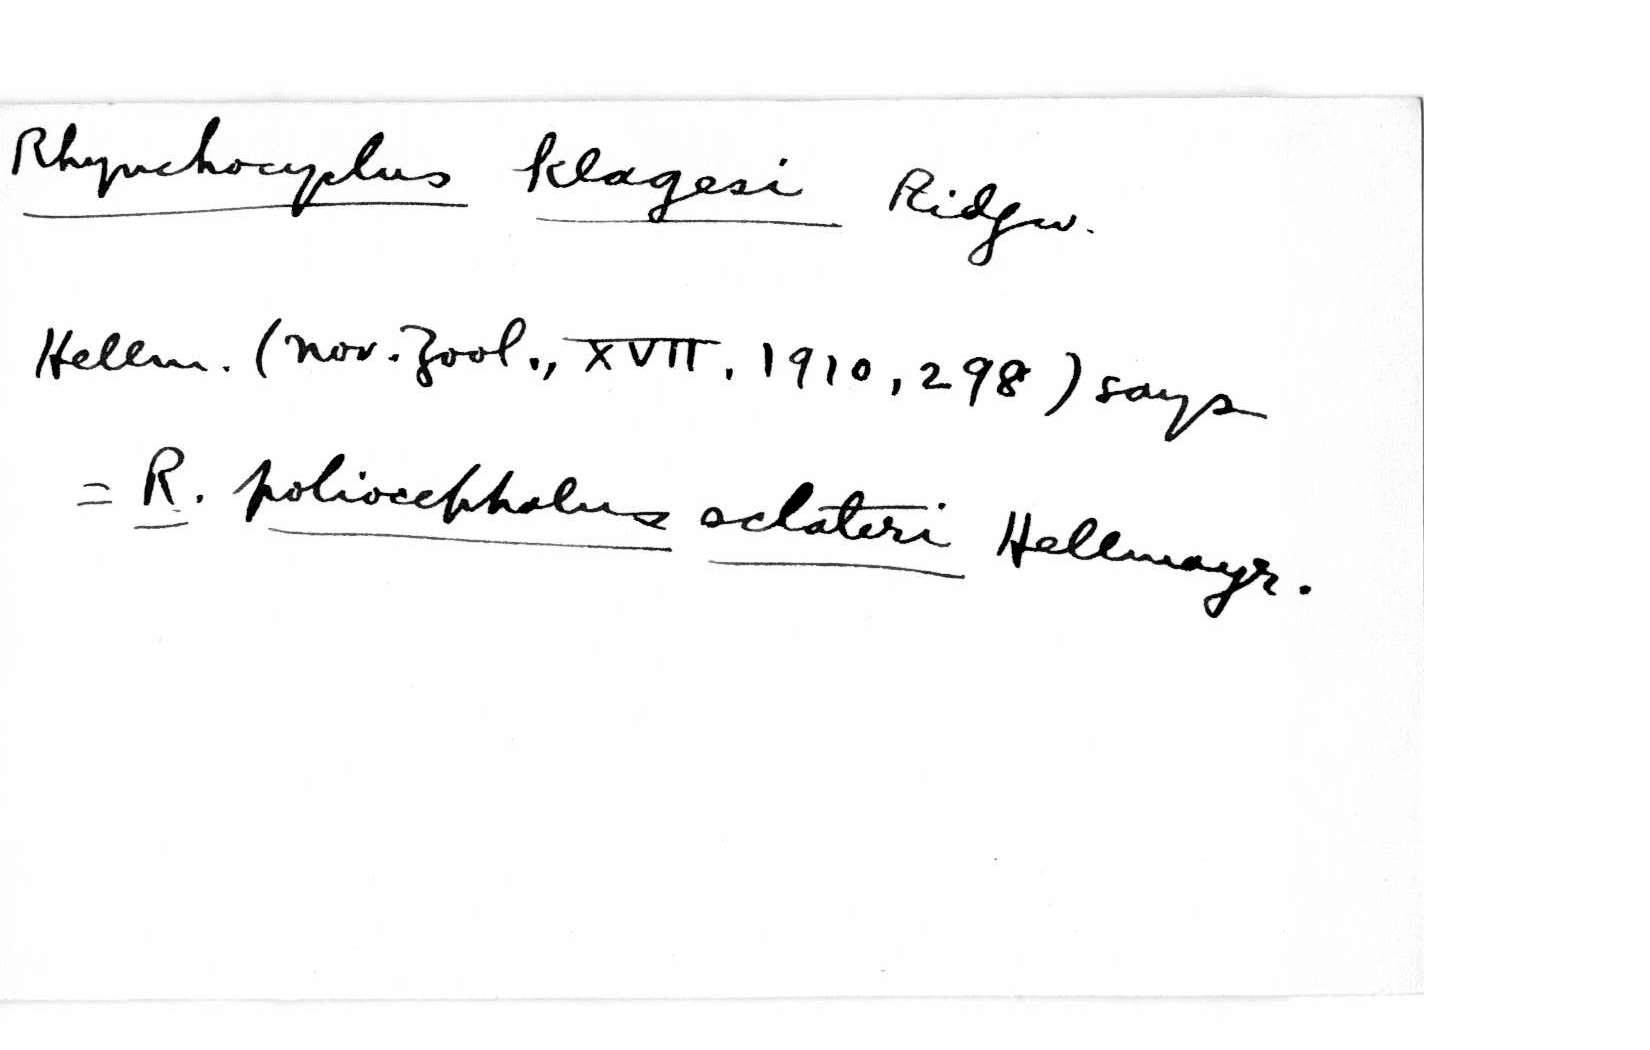 Rhynchocyclus klagesi Ridgw.
Hellm. (Nov. Zool., XVII, 1910, 298) says
= R. poliocephalus sclateri Hellmayr.